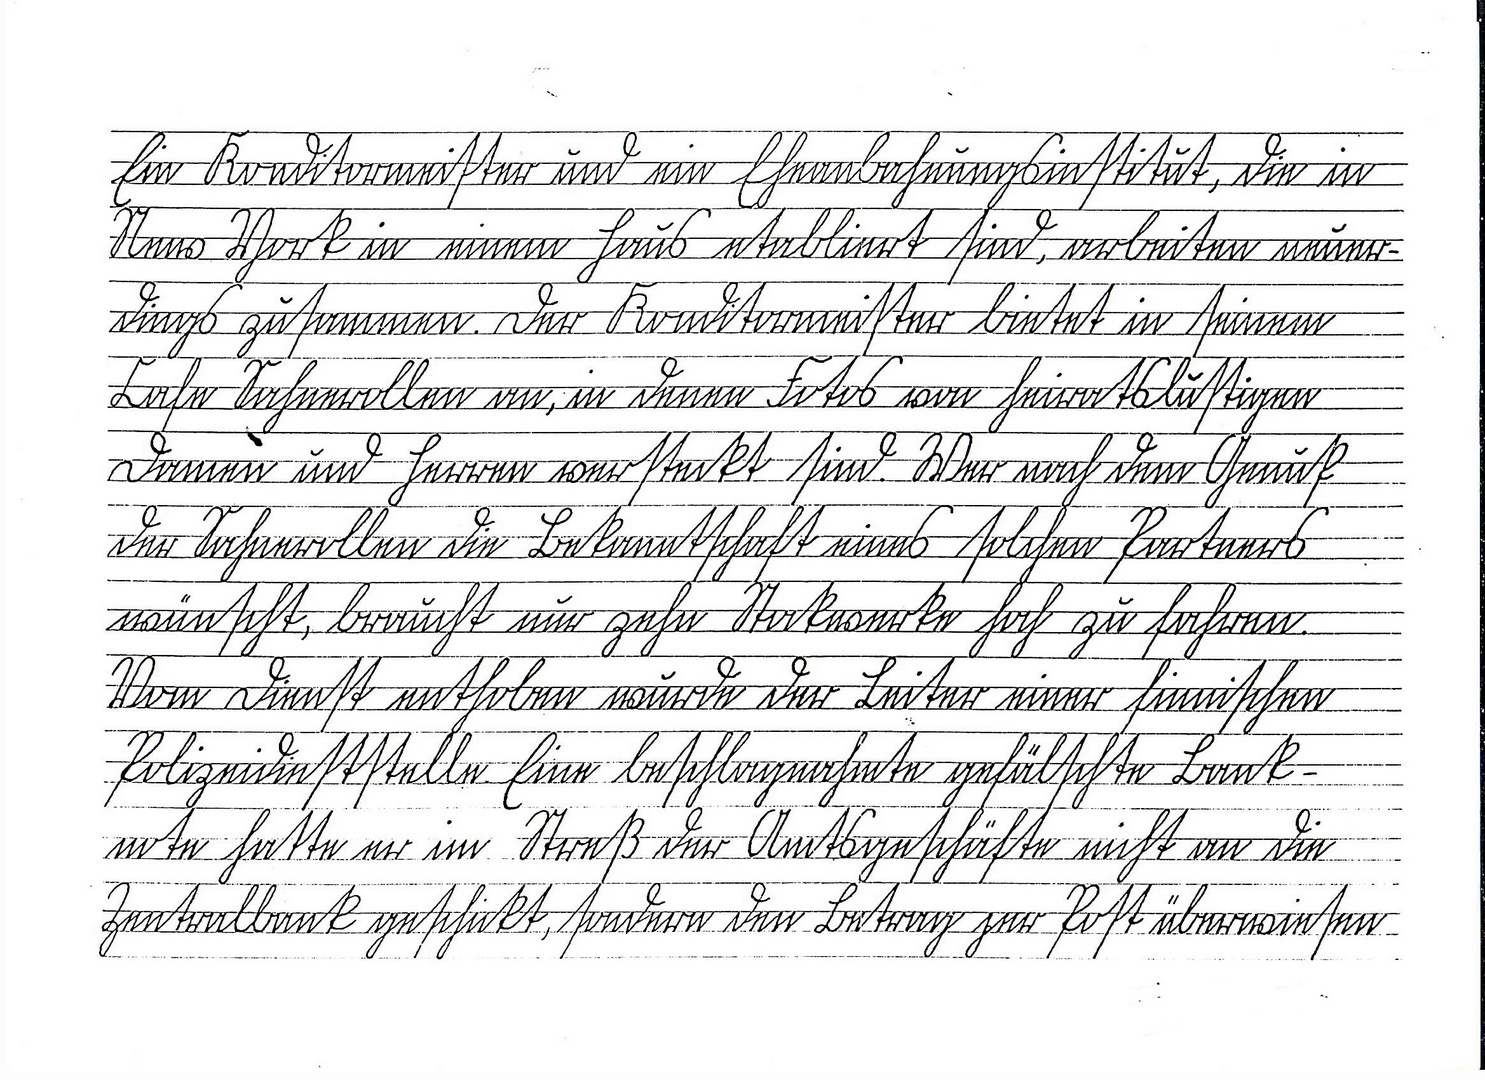 Ein Konditormeister und ein Eheanbahnungsinstitut, die in
New York in einem Haus etabliert sind, arbeiten neuer-
dings zusammen. Der Konditormeister bietet in seinem
Cafe Sahnerollen an, in denen Fotos von heiratslustigen
Damen und Herren versteckt sind. Wer nach dem Genuß
der Sahnerollen die Bekanntschaft eines solchen Partners
wünscht, braucht nur zehn Stockwerke hoch zu fahren.
Vom Dienst enthoben wurde der Leiter einer finnischen
Polizeidienststelle. Eine beschlagnahmte gefälschte Bank-
note hatte er im Streß der Amtsgeschäfte nicht an die
Zentralbank geschickt, sondern den Betrag per Post überwiesen